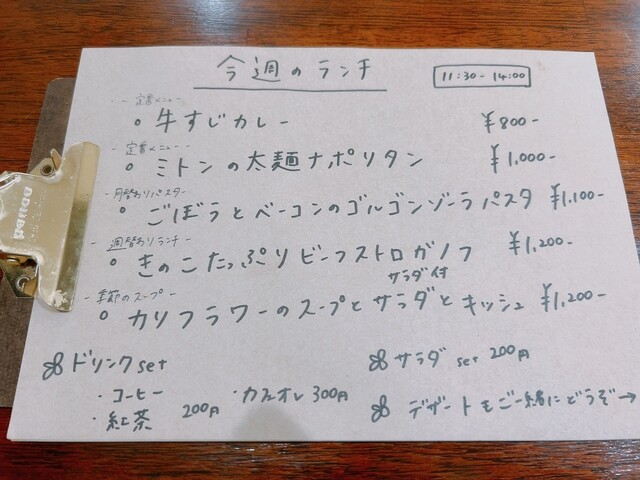 今週のランチ
11:30-14:00
- 定番メニュー -
○ 牛すじカレー ¥800-
- 定番メニュー -
○ ミトンの太麺ナポリタン ¥1,000-
- 月替わりパスタ -
○ ごぼうとベーコンのゴルゴンゾーラパスタ ¥1,100-
- 週替わりランチ -
○ きのこたっぷりビーフストロガノフ ¥1,200-
サラダ付
- 季節のスープ -
○ カリフラワーのスープとサラダとキッシュ ¥1,200-
ドリンクset
・コーヒー
・紅茶 200円
・カフェオレ 300円
サラダset 200円
デザートもご一緒にどうぞ→